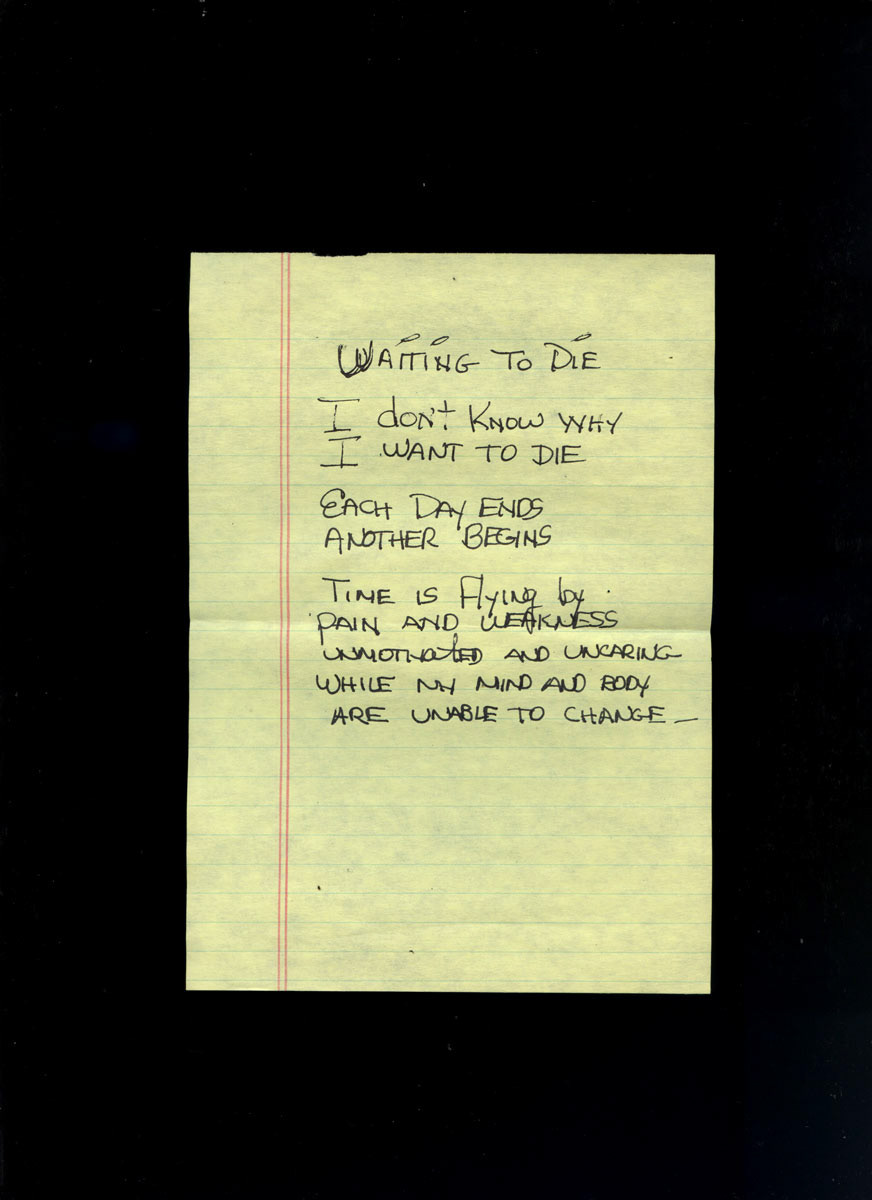 WAITING TO DIE
I don't KNOW WHY
I WANT TO DIE
EACH DAY ENDS
ANOTHER BEGINS
TIME IS Flying by
PAIN AND WEAKNESS
UNMOTIVATED AND UNCARING
WHILE MY MIND AND BODY
ARE UNABLE TO CHANGE —